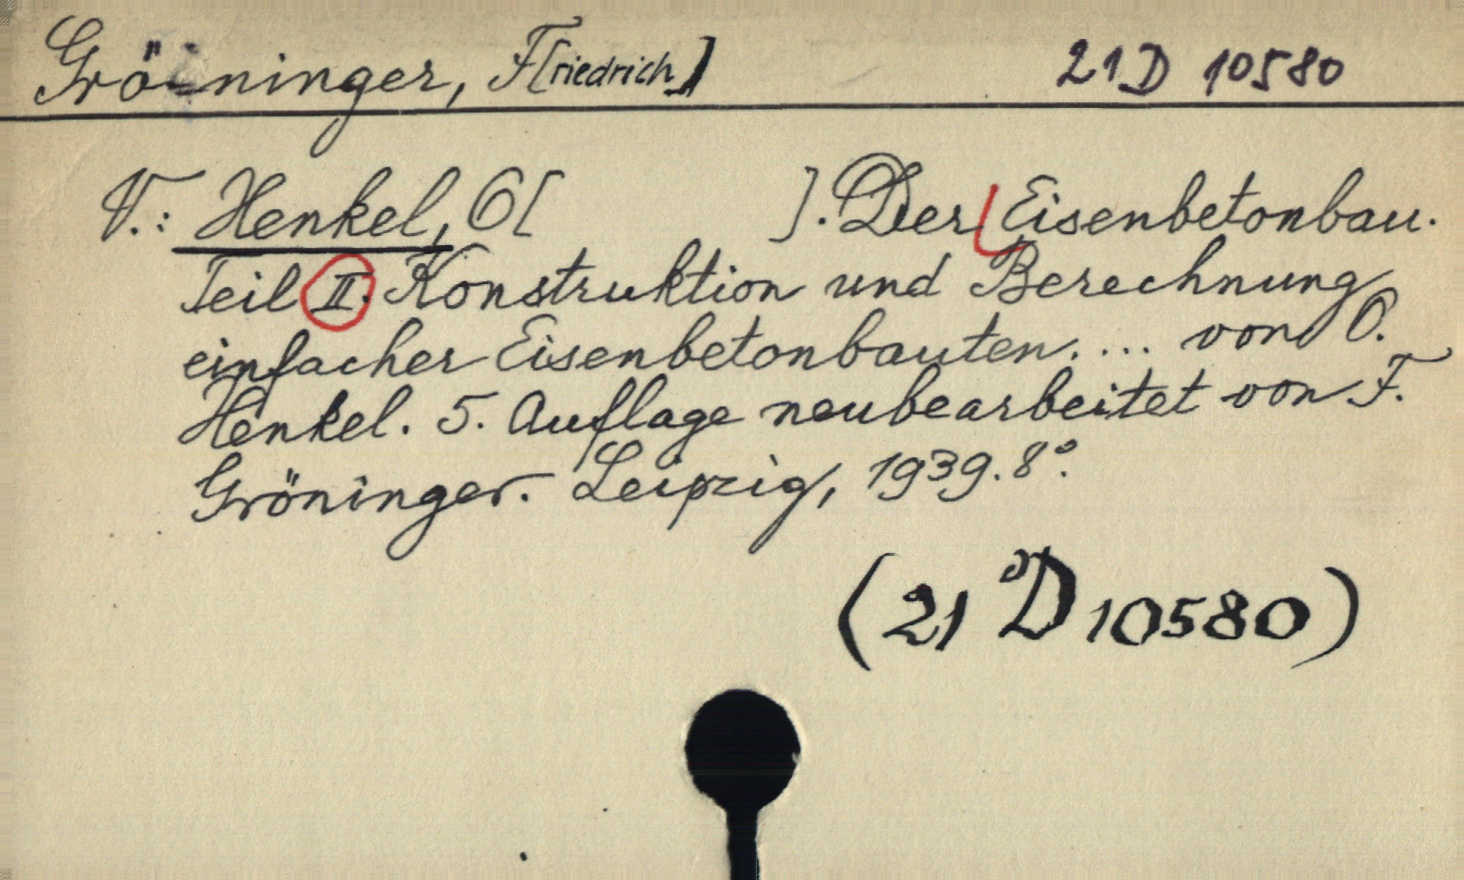 Gröninger, F[riedrich] 21 D 10580
V.: Henkel, O[ ]. Der Eisenbetonbau.
Teil II. Konstruktion und Berechnung
einfacher Eisenbetonbauten. ... von O.
Henkel. 5. Auflage neubearbeitet von F.
Gröninger. Leipzig, 1939. 8°.
(21 D 10580)